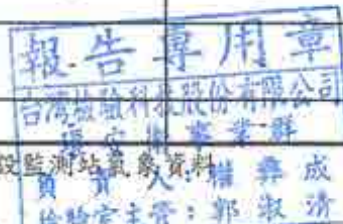 報告專用章
台灣檢驗科技股份有限公司
環安衛事業群
設監測站氣象資料
負責人：
成
檢驗室主管：郭淑清